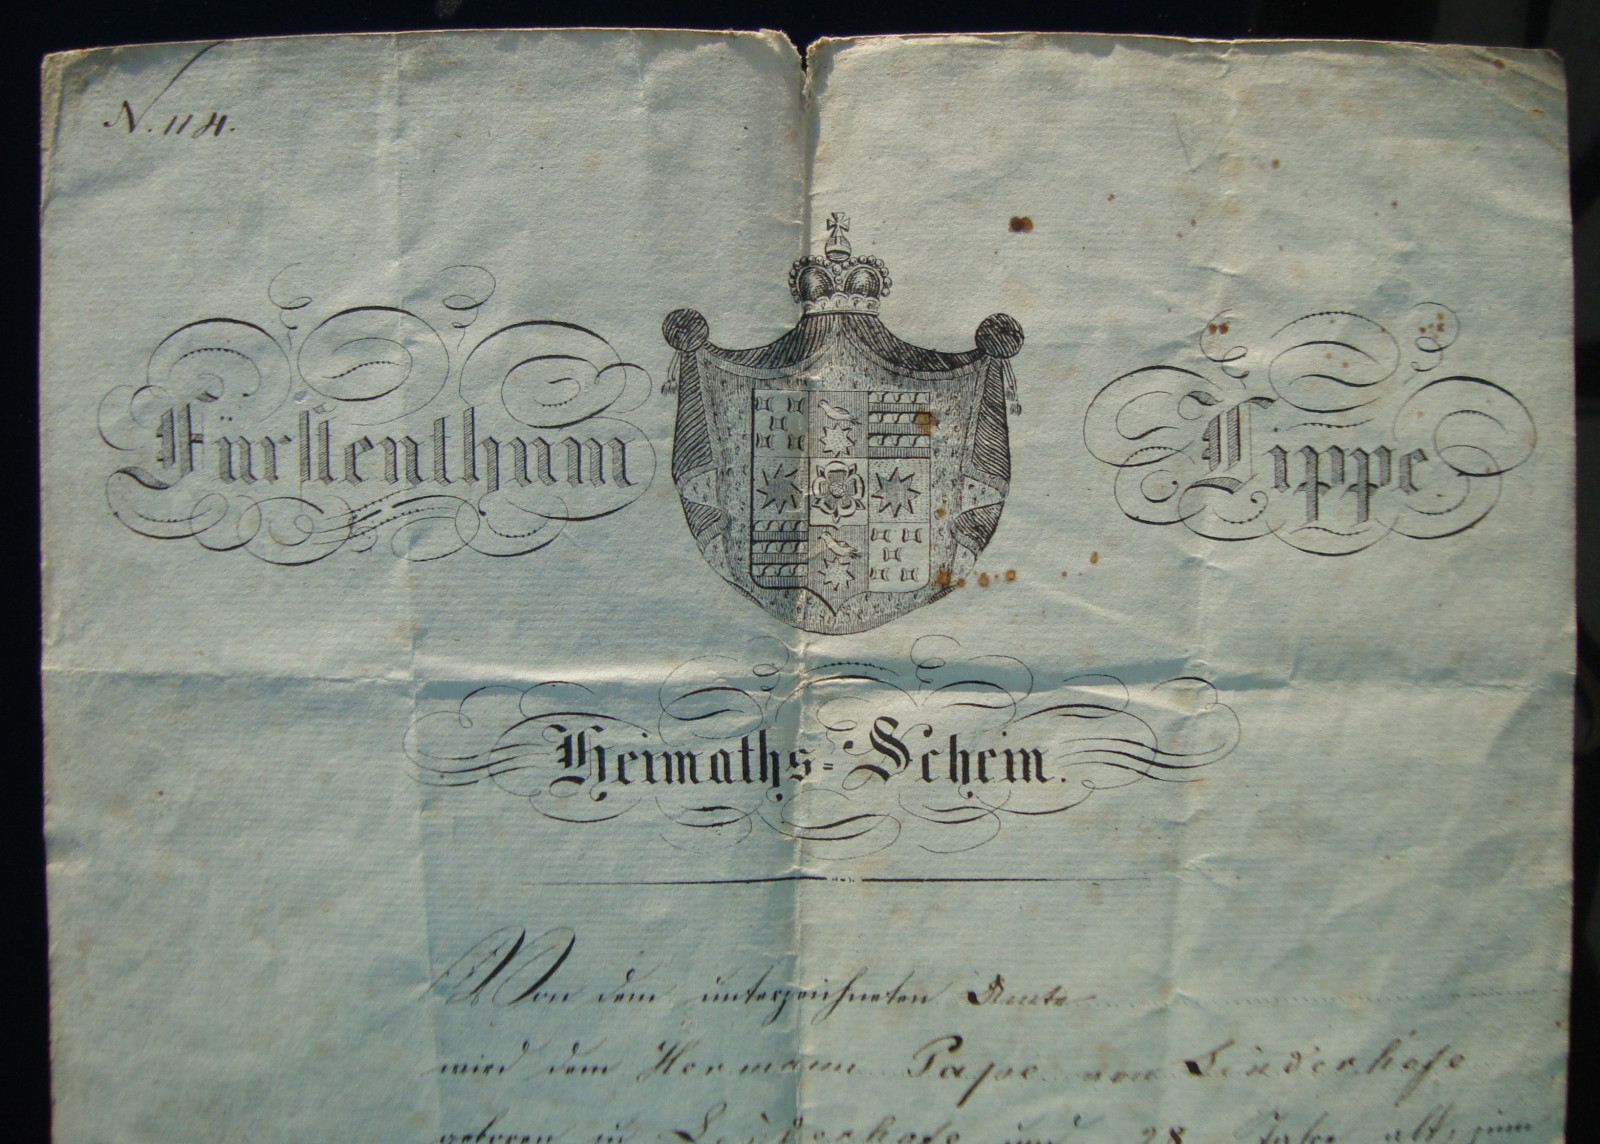 N. 114.
Fürstenthum Lippe.
Heimaths=Schein.
Von dem unterzeichneten Amte
wird dem Hermann Pape von Linderhofe
geboren in Linderhofe und 28 Jahr alt, zum